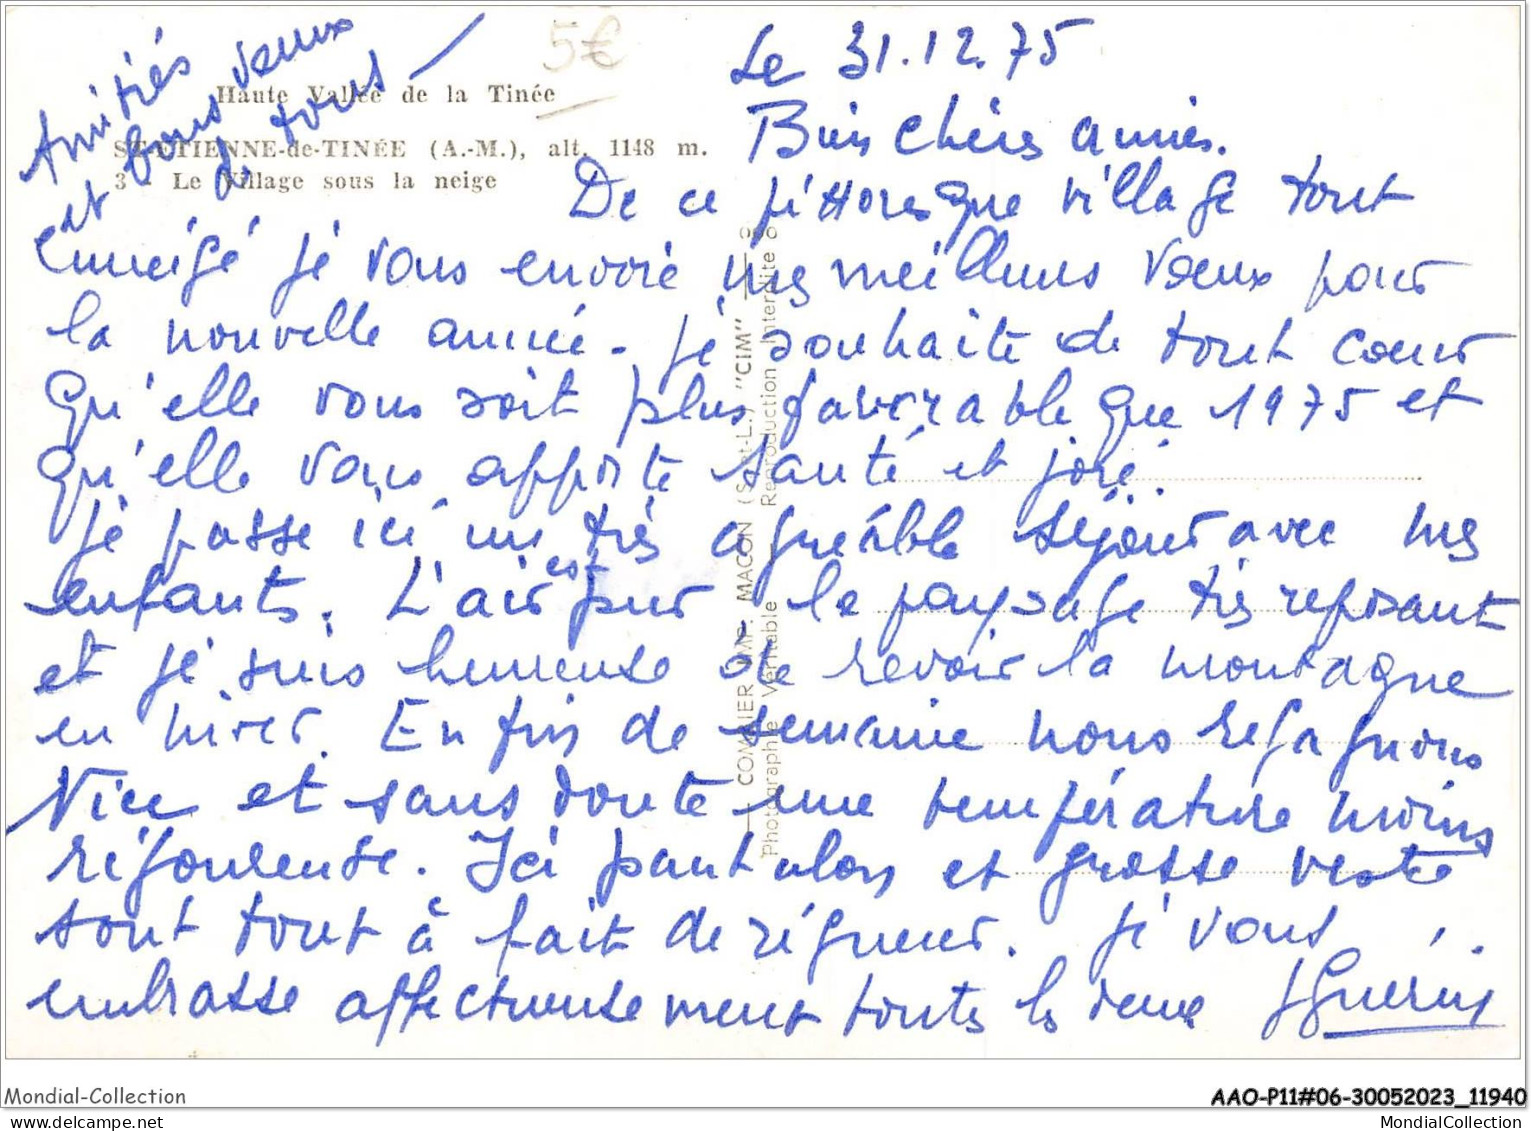 Amitiés
et bons vœux
de tous
5€
Haute Vallée de la Tinée
ST-ETIENNE-de-TINÉE (A.-M.), alt. 1148 m.
3 - Le Village sous la neige
Le 31.12.75
Bien chères amies.
De ce pittoresque village tout
enneigé je vous envoie mes meilleurs vœux pour
la nouvelle année. Je souhaite de tout cœur
qu'elle vous soit plus favorable que 1975 et
qu'elle vous apporte santé et joie.
Je passe ici un très agréable séjour avec mes
enfants. L'air est pur le paysage très reposant
et je suis heureuse de revoir la montagne
en hiver. En fin de semaine nous regagnons
Nice et sans doute une température moins
rigoureuse. Ici pantalons et grosse veste
sont tout à fait de rigueur. Je vous
embrasse affectueusement toutes les deux
COMBIER IMP. MACON (S.-et-L.) "CIM"
Photographie Véritable Reproduction Interdite
Mondial-Collection
AAO-P11#06-30052023_11940
delcampe.net
MondialCollection